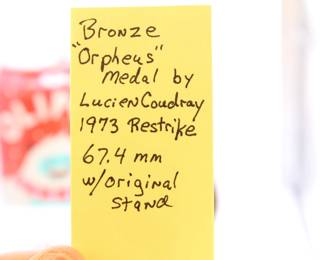 Bronze
"Orpheus"
Medal by
Lucien Coudray
1973 Restrike
67.4 mm
w/original
stand